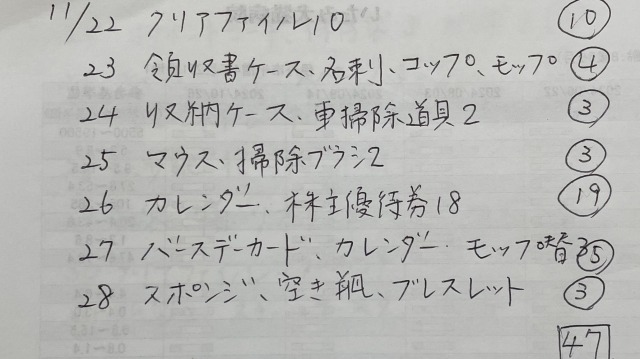 11/22 クリアファイル10 ⑩
23 領収書ケース、名刺、コップ、モップ ④
24 収納ケース、車掃除道具2 ③
25 マウス、掃除ブラシ2 ③
26 カレンダー、株主優待券18 ⑲
27 バースデーカード、カレンダー、モップ替3 ⑤
28 スポンジ、空き瓶、ブレスレット ③
47